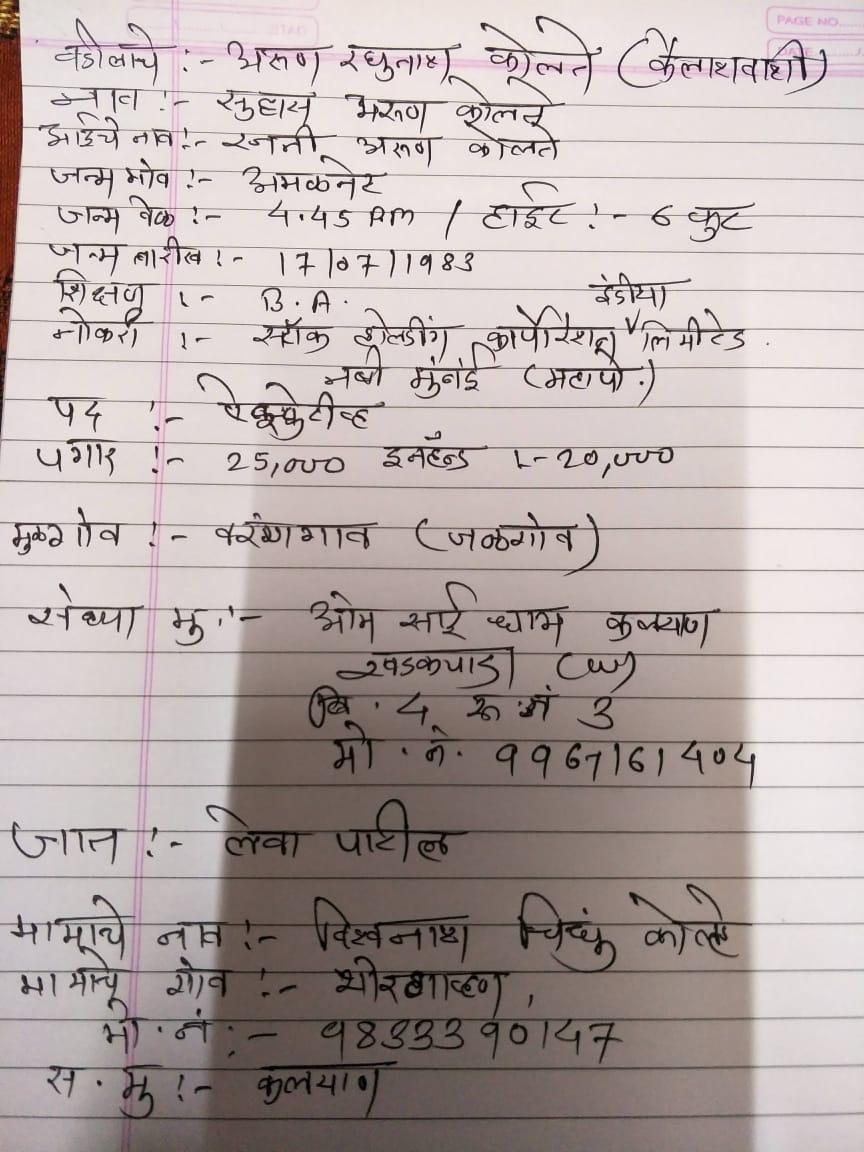 PAGE NO.
DATE
वडीलाचे :- अरुण रघुनाथ कोलते (कैलाशवाशी)
नाव :- सुहास अरुण कोलते
आईचे नाव :- रजनी अरुण कोलते
जन्म गाव :- अमळनेर
जन्म वेळ :- 4.45 AM / हाईट :- 6 फुट
जन्म तारीख :- 17/07/1983
शिक्षण :- B.A.
इंडीया
नोकरी :- स्टॉक होल्डींग कार्पोरेशन लिमीटेड.
नवी मुंबई (महापे.)
पद :- ऐक्झुकेटीव्ह
पगार :- 25,000 इनहॅन्ड :- 20,000
मुळगाव :- वरणगाव (जळगाव)
सध्या मु :- ओम साई धाम कल्याण
खडकपाडा (W)
बि. 4 रु नं 3
मो. नं. 9967161404
जात :- लेवा पाटील
मामाचे नाव :- विश्वनाथ चिंधु कोल्हे
मामाचे गाव :- थोरगव्हाण,
मो. नं. :- 9833390147
स. मु :- कल्याण